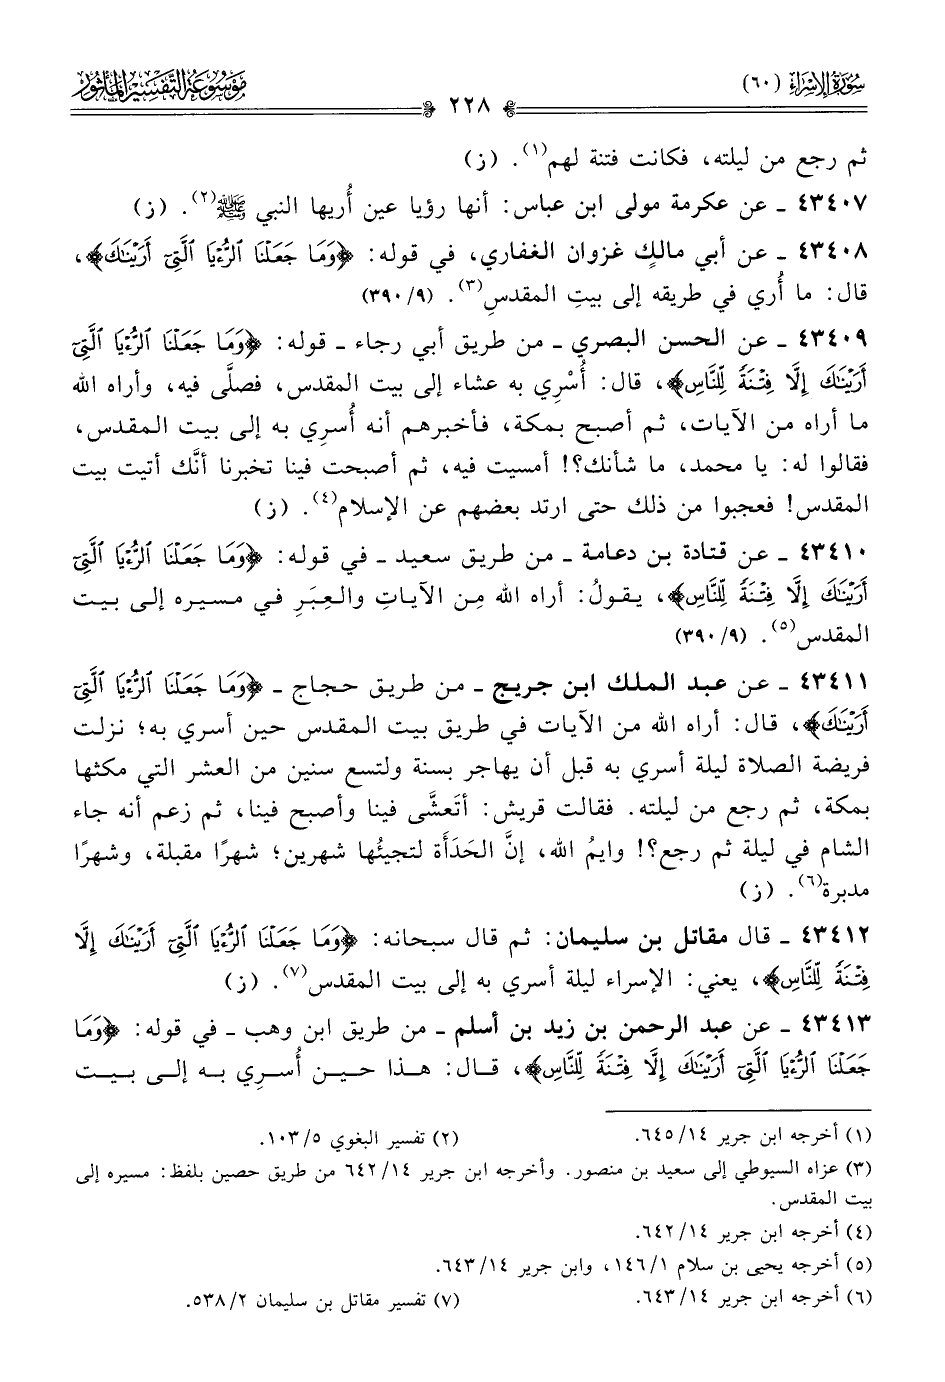 سُورَةُ الإِسْرَاءِ (٦٠)
٢٢٨
مَوْسُوعَةُ التَّفْسِيرِ المَأْثُور
ثم رجع من ليلته، فكانت فتنة لهم(١). (ز)
٤٣٤٠٧ ـ عن عكرمة مولى ابن عباس: أنها رؤيا عين أُريها النبي ﷺ(٢). (ز)
٤٣٤٠٨ ـ عن أبي مالكٍ غزوان الغفاري، في قوله: ﴿وَمَا جَعَلْنَا ٱلرُّءْيَا ٱلَّتِىٓ أَرَيْنَٰكَ﴾،
قال: ما أُري في طريقه إلى بيتِ المقدسِ(٣). (٩/ ٣٩٠)
٤٣٤٠٩ ـ عن الحسن البصري ـ من طريق أبي رجاء ـ قوله: ﴿وَمَا جَعَلْنَا ٱلرُّءْيَا ٱلَّتِىٓ
أَرَيْنَٰكَ إِلَّا فِتْنَةً لِّلنَّاسِ﴾، قال: أُسْرِي به عشاء إلى بيت المقدس، فصلَّى فيه، وأراه الله
ما أراه من الآيات، ثم أصبح بمكة، فأخبرهم أنه أُسرِي به إلى بيت المقدس،
فقالوا له: يا محمد، ما شأنك؟! أمسيت فيه، ثم أصبحت فينا تخبرنا أنَّك أتيت بيت
المقدس! فعجبوا من ذلك حتى ارتد بعضهم عن الإسلام(٤). (ز)
٤٣٤١٠ ـ عن قتادة بن دعامة ـ من طريق سعيد ـ في قوله: ﴿وَمَا جَعَلْنَا ٱلرُّءْيَا ٱلَّتِىٓ
أَرَيْنَٰكَ إِلَّا فِتْنَةً لِّلنَّاسِ﴾، يقولُ: أراه الله مِن الآياتِ والعِبَرِ في مسيره إلى بيت
المقدس(٥). (٩/ ٣٩٠)
٤٣٤١١ ـ عن عبد الملك ابن جريج ـ من طريق حجاج ـ ﴿وَمَا جَعَلْنَا ٱلرُّءْيَا ٱلَّتِىٓ
أَرَيْنَٰكَ﴾، قال: أراه الله من الآيات في طريق بيت المقدس حين أسري به؛ نزلت
فريضة الصلاة ليلة أسري به قبل أن يهاجر بسنة ولتسع سنين من العشر التي مكثها
بمكة، ثم رجع من ليلته. فقالت قريش: أتَعشَّى فينا وأصبح فينا، ثم زعم أنه جاء
الشام في ليلة ثم رجع؟! وايمُ الله، إنَّ الحَدَأَة لتجيئُها شهرين؛ شهرًا مقبلة، وشهرًا
مدبرة(٦). (ز)
٤٣٤١٢ ـ قال مقاتل بن سليمان: ثم قال سبحانه: ﴿وَمَا جَعَلْنَا ٱلرُّءْيَا ٱلَّتِىٓ أَرَيْنَٰكَ إِلَّا
فِتْنَةً لِّلنَّاسِ﴾، يعني: الإسراء ليلة أسري به إلى بيت المقدس(٧). (ز)
٤٣٤١٣ ـ عن عبد الرحمن بن زيد بن أسلم ـ من طريق ابن وهب ـ في قوله: ﴿وَمَا
جَعَلْنَا ٱلرُّءْيَا ٱلَّتِىٓ أَرَيْنَٰكَ إِلَّا فِتْنَةً لِّلنَّاسِ﴾، قال: هذا حين أُسرِي به إلى بيت
(١) أخرجه ابن جرير ١٤/ ٦٤٥.
(٢) تفسير البغوي ٥/ ١٠٣.
(٣) عزاه السيوطي إلى سعيد بن منصور. وأخرجه ابن جرير ١٤/ ٦٤٢ من طريق حصين بلفظ: مسيره إلى
بيت المقدس.
(٤) أخرجه ابن جرير ١٤/ ٦٤٢.
(٥) أخرجه يحيى بن سلام ١/ ١٤٦، وابن جرير ١٤/ ٦٤٣.
(٦) أخرجه ابن جرير ١٤/ ٦٤٣.
(٧) تفسير مقاتل بن سليمان ٢/ ٥٣٨.